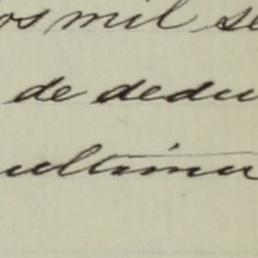 os mil se
de dedu
ultima